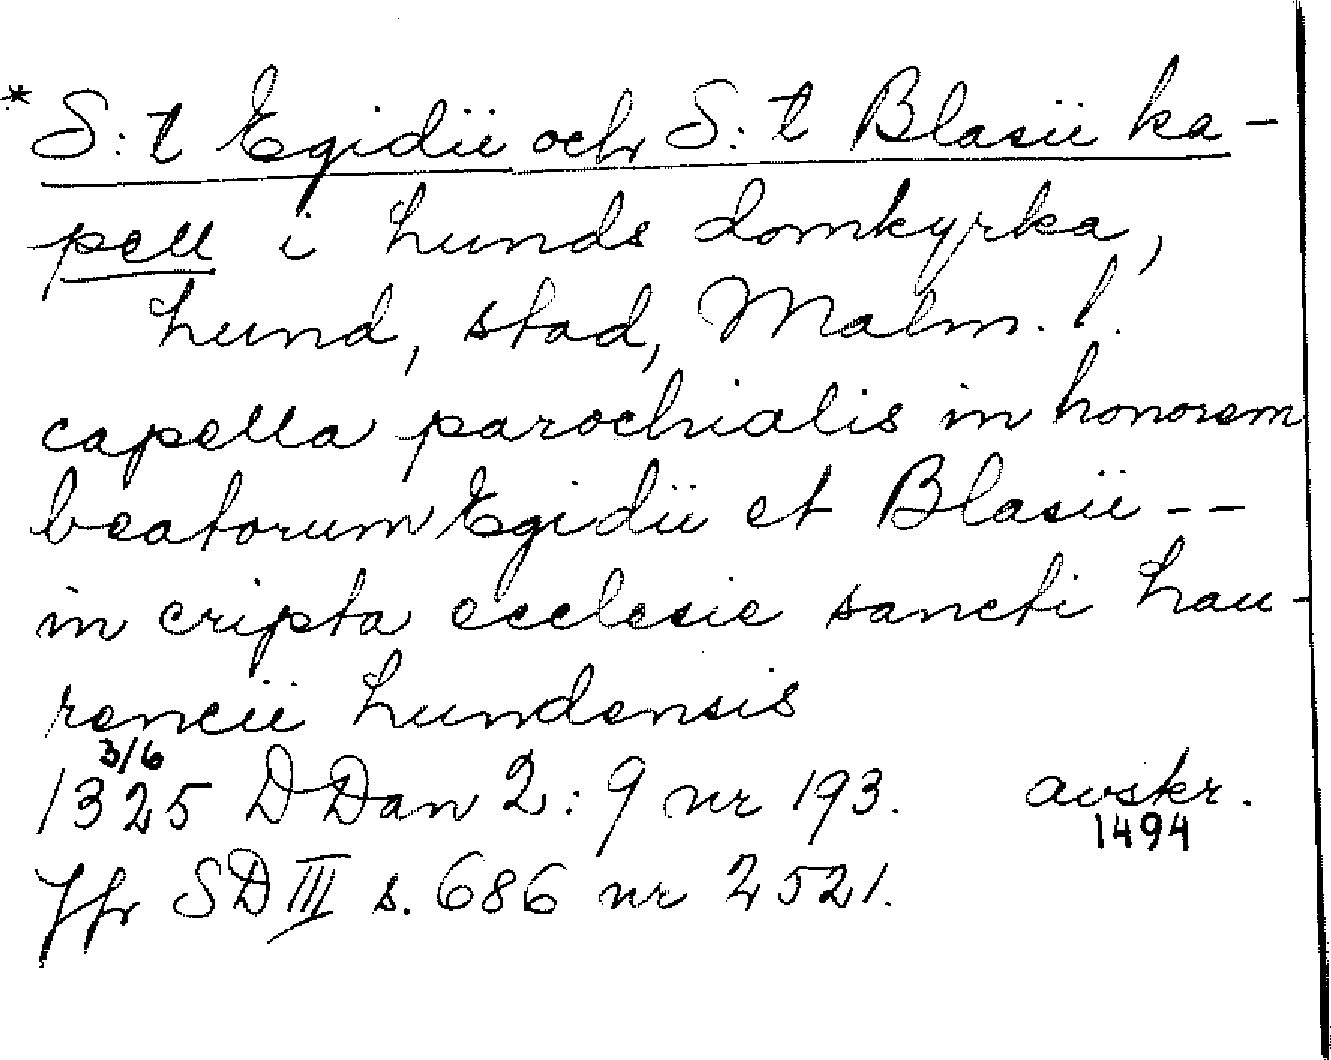 * S:t Egidii och S:t Blasii ka-
pell i Lunds domkyrka,
Lund, stad, Malm. l.
capella parochialis in honorem
beatorum Egidii et Blasii --
in cripta ecclesie sancti Lau-
rencii Lundensis
3/6
1325 DDan 2:9 nr 193. avskr.
1494
Jfr SD III s. 686 nr 2521.